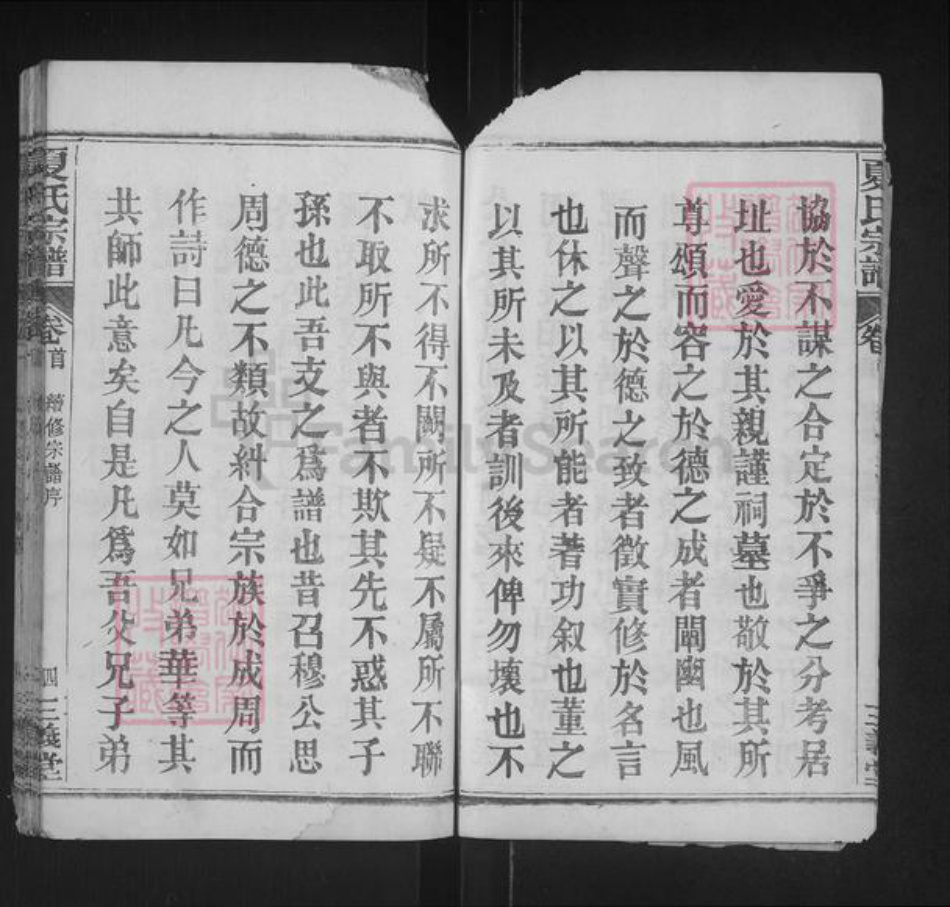 夏氏宗譜
卷
三義堂
協於不謀之合定於不爭之分考居
址也愛於其親謹祠墓也敬於其所
尊頌而容之於德之成者闡幽也風
而聲之於德之致者徵實修於名言
也休之以其所能者著功叙也董之
以其所未及者訓後來俾勿壞也不
求所不得不闕所不疑不屬所不聯
不取所不與者不欺其先不惑其子
孫也此吾支之爲譜也昔召穆公思
周德之不類故糾合宗族於成周而
作詩曰凡今之人莫如兄弟華等其
共師此意矣自是凡爲吾父兄子弟
夏氏宗譜
卷首
續修宗譜序
四
三義堂
FamilySearch